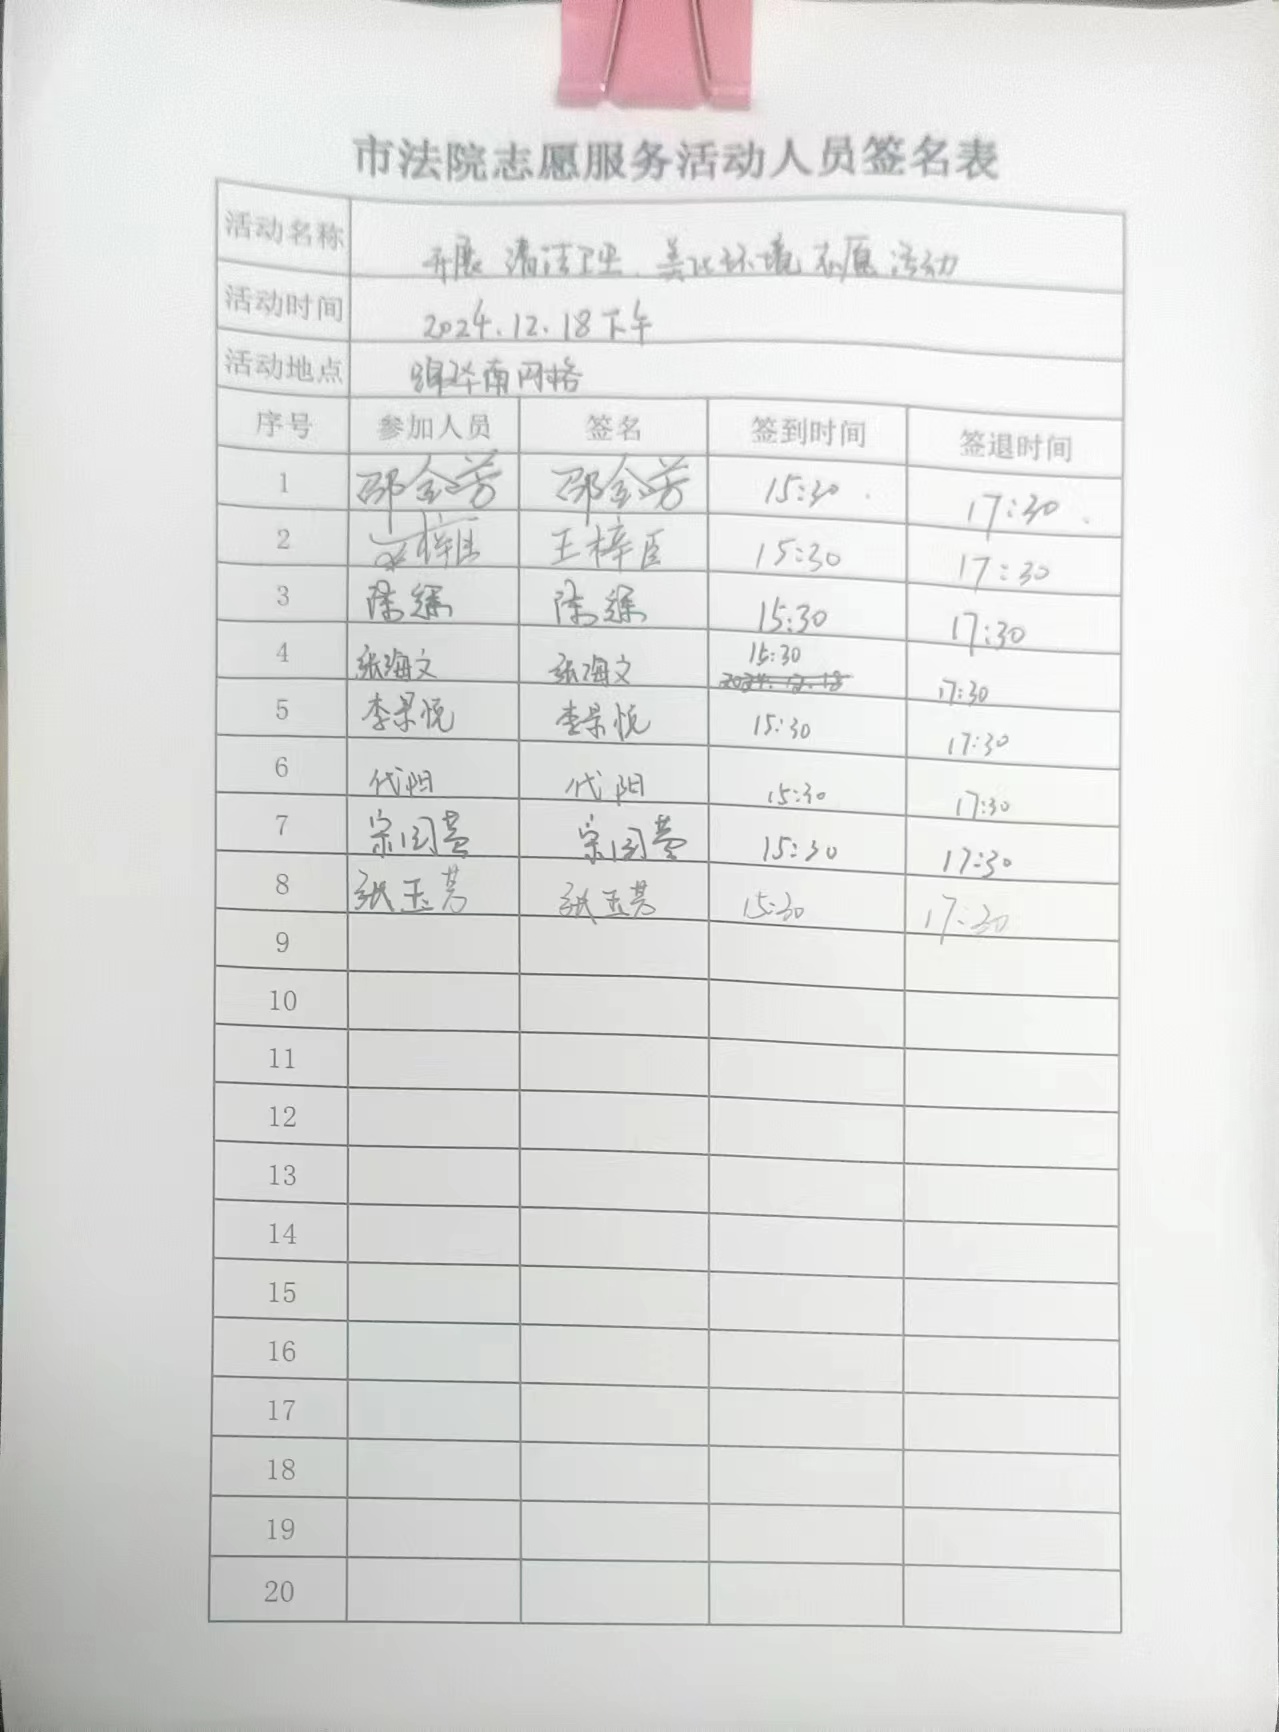 市法院志愿服务活动人员签名表
活动名称 开展清洁卫生、美化环境志愿活动
活动时间 2024.12.18下午
活动地点 锦华南网格
序号 参加人员 签名 签到时间 签退时间
1 邵金芳 邵金芳 15:30 17:30
2 王梓臣 王梓臣 15:30 17:30
3 陈 陈 15:30 17:30
4 张海文 张海文 15:30 17:30
2024.12.18
5 李景悦 李景悦 15:30 17:30
6 代阳 代阳 15:30 17:30
7 宗 宗 15:30 17:30
8 张玉芳 张玉芳 15:30 17:30
9
10
11
12
13
14
15
16
17
18
19
20